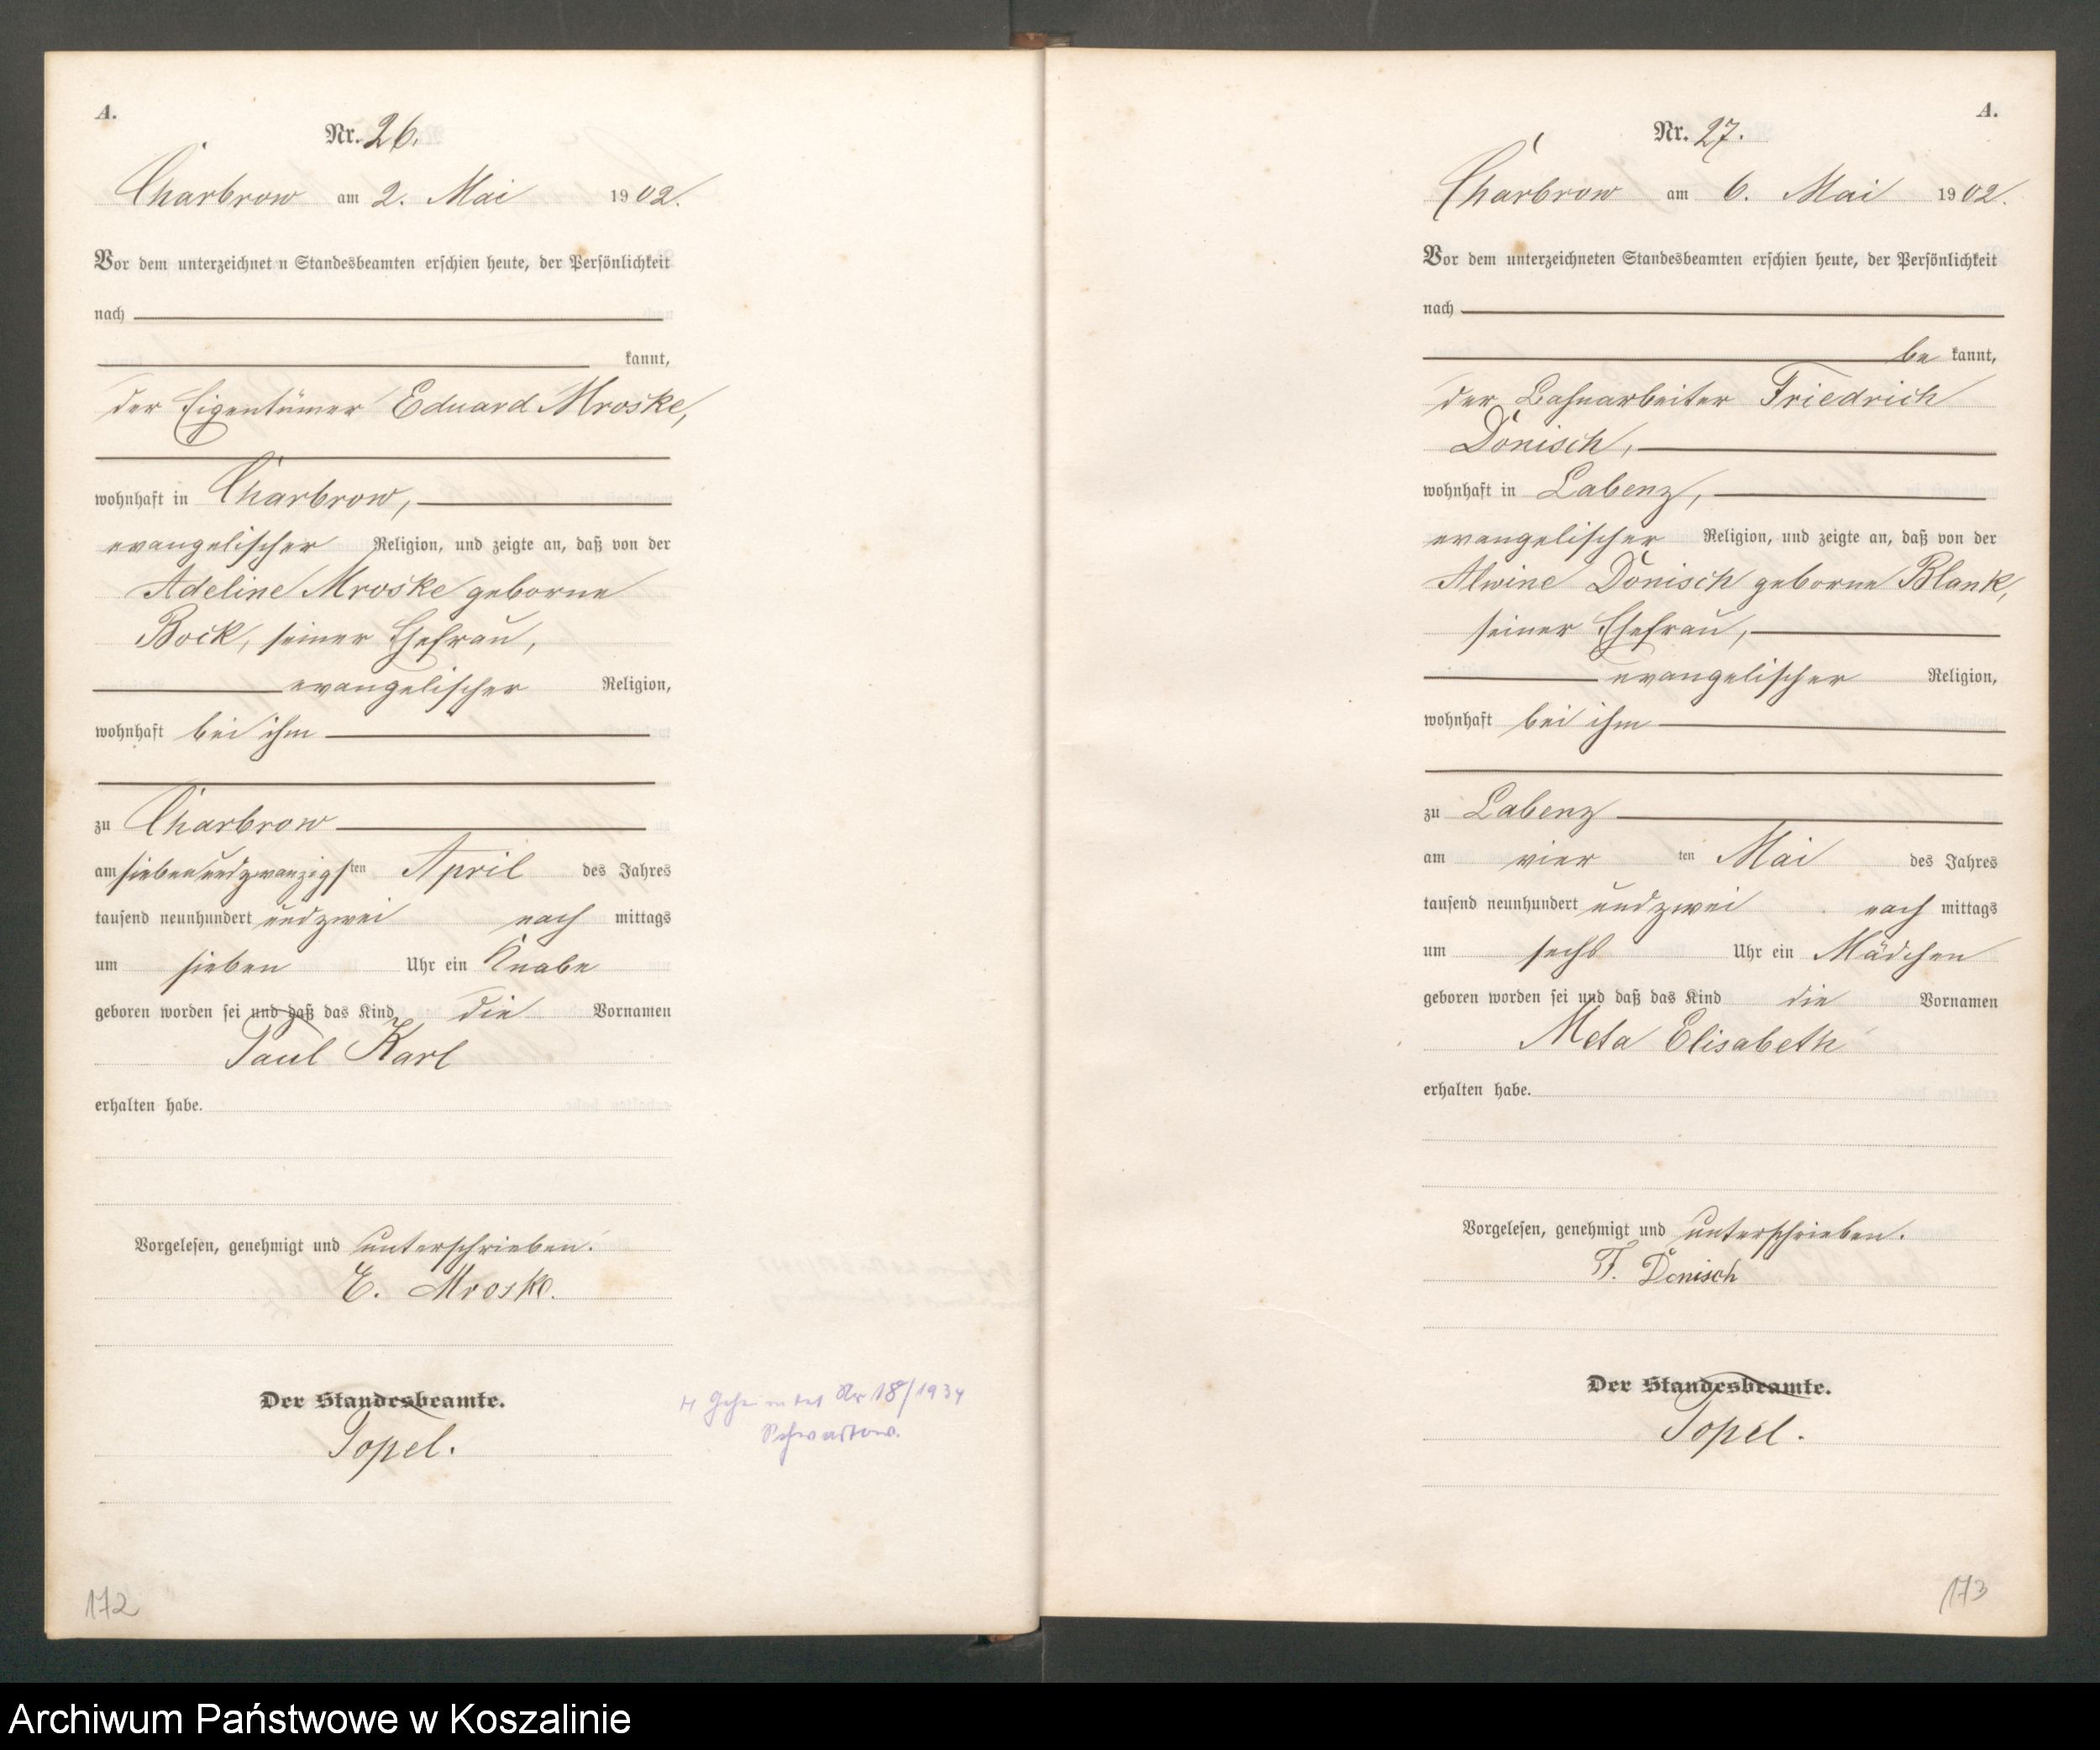 A.
Nr. 26.
Charbrow am 2. Mai 1902.
Vor dem unterzeichnet n Standesbeamten erschien heute, der Persönlichkeit
nach
kannt,
der Eigentümer Eduard Mroske,
wohnhaft in Charbrow,
evangelischer Religion, und zeigte an, daß von der
Adeline Mroske geborne
Bock, seiner Ehefrau,
evangelischer Religion,
wohnhaft bei ihm
zu Charbrow
am siebenundzwanzigsten April des Jahres
tausend neunhundert undzwei nach mittags
um sieben Uhr ein Knabe
geboren worden sei und daß das Kind die Vornamen
Paul Karl
erhalten habe.
Vorgelesen, genehmigt und unterschrieben.
E. Mroske.
Der Standesbeamte.
Topel.
H Nr 18/1934
Schwartow.
172
A.
Nr. 27.
Charbrow am 6. Mai 1902.
Vor dem unterzeichneten Standesbeamten erschien heute, der Persönlichkeit
nach
be kannt,
der Bahnarbeiter Friedrich
Donisch,
wohnhaft in Labenz,
evangelischer Religion, und zeigte an, daß von der
Alwine Donisch geborne Blank,
seiner Ehefrau,
evangelischer Religion,
wohnhaft bei ihm
zu Labenz
am vier ten Mai des Jahres
tausend neunhundert undzwei nach mittags
um sechs Uhr ein Mädchen
geboren worden sei und daß das Kind die Vornamen
Meta Elisabeth
erhalten habe.
Vorgelesen, genehmigt und unterschrieben.
F. Donisch
Der Standesbeamte.
Topel.
173
Archiwum Państwowe w Koszalinie